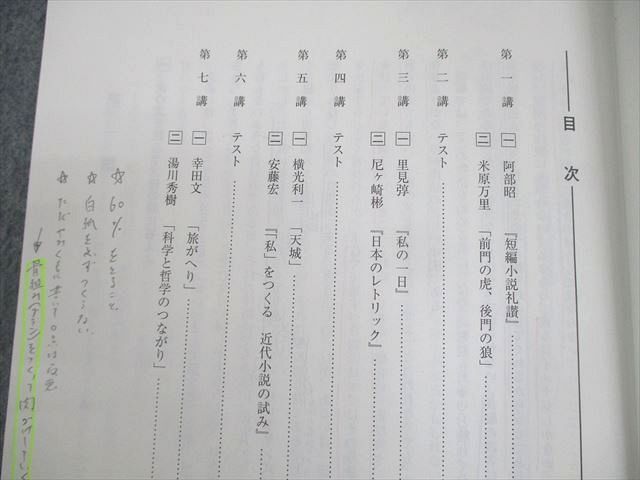 目次
第一講 一 阿部昭 『短編小説礼讃』
二 米原万里 「前門の虎、後門の狼」
第二講 テスト
第三講 一 里見弴 『私の一日』
二 尼ヶ崎彬 『日本のレトリック』
第四講 テスト
第五講 一 横光利一 「天城」
二 安藤宏 『「私」をつくる 近代小説の試み』
第六講 テスト
第七講 一 幸田文 「旅がへり」
二 湯川秀樹 「科学と哲学のつながり」
☆ 60%をとること
☆ 白紙を必ずつくらない
☆ ただ